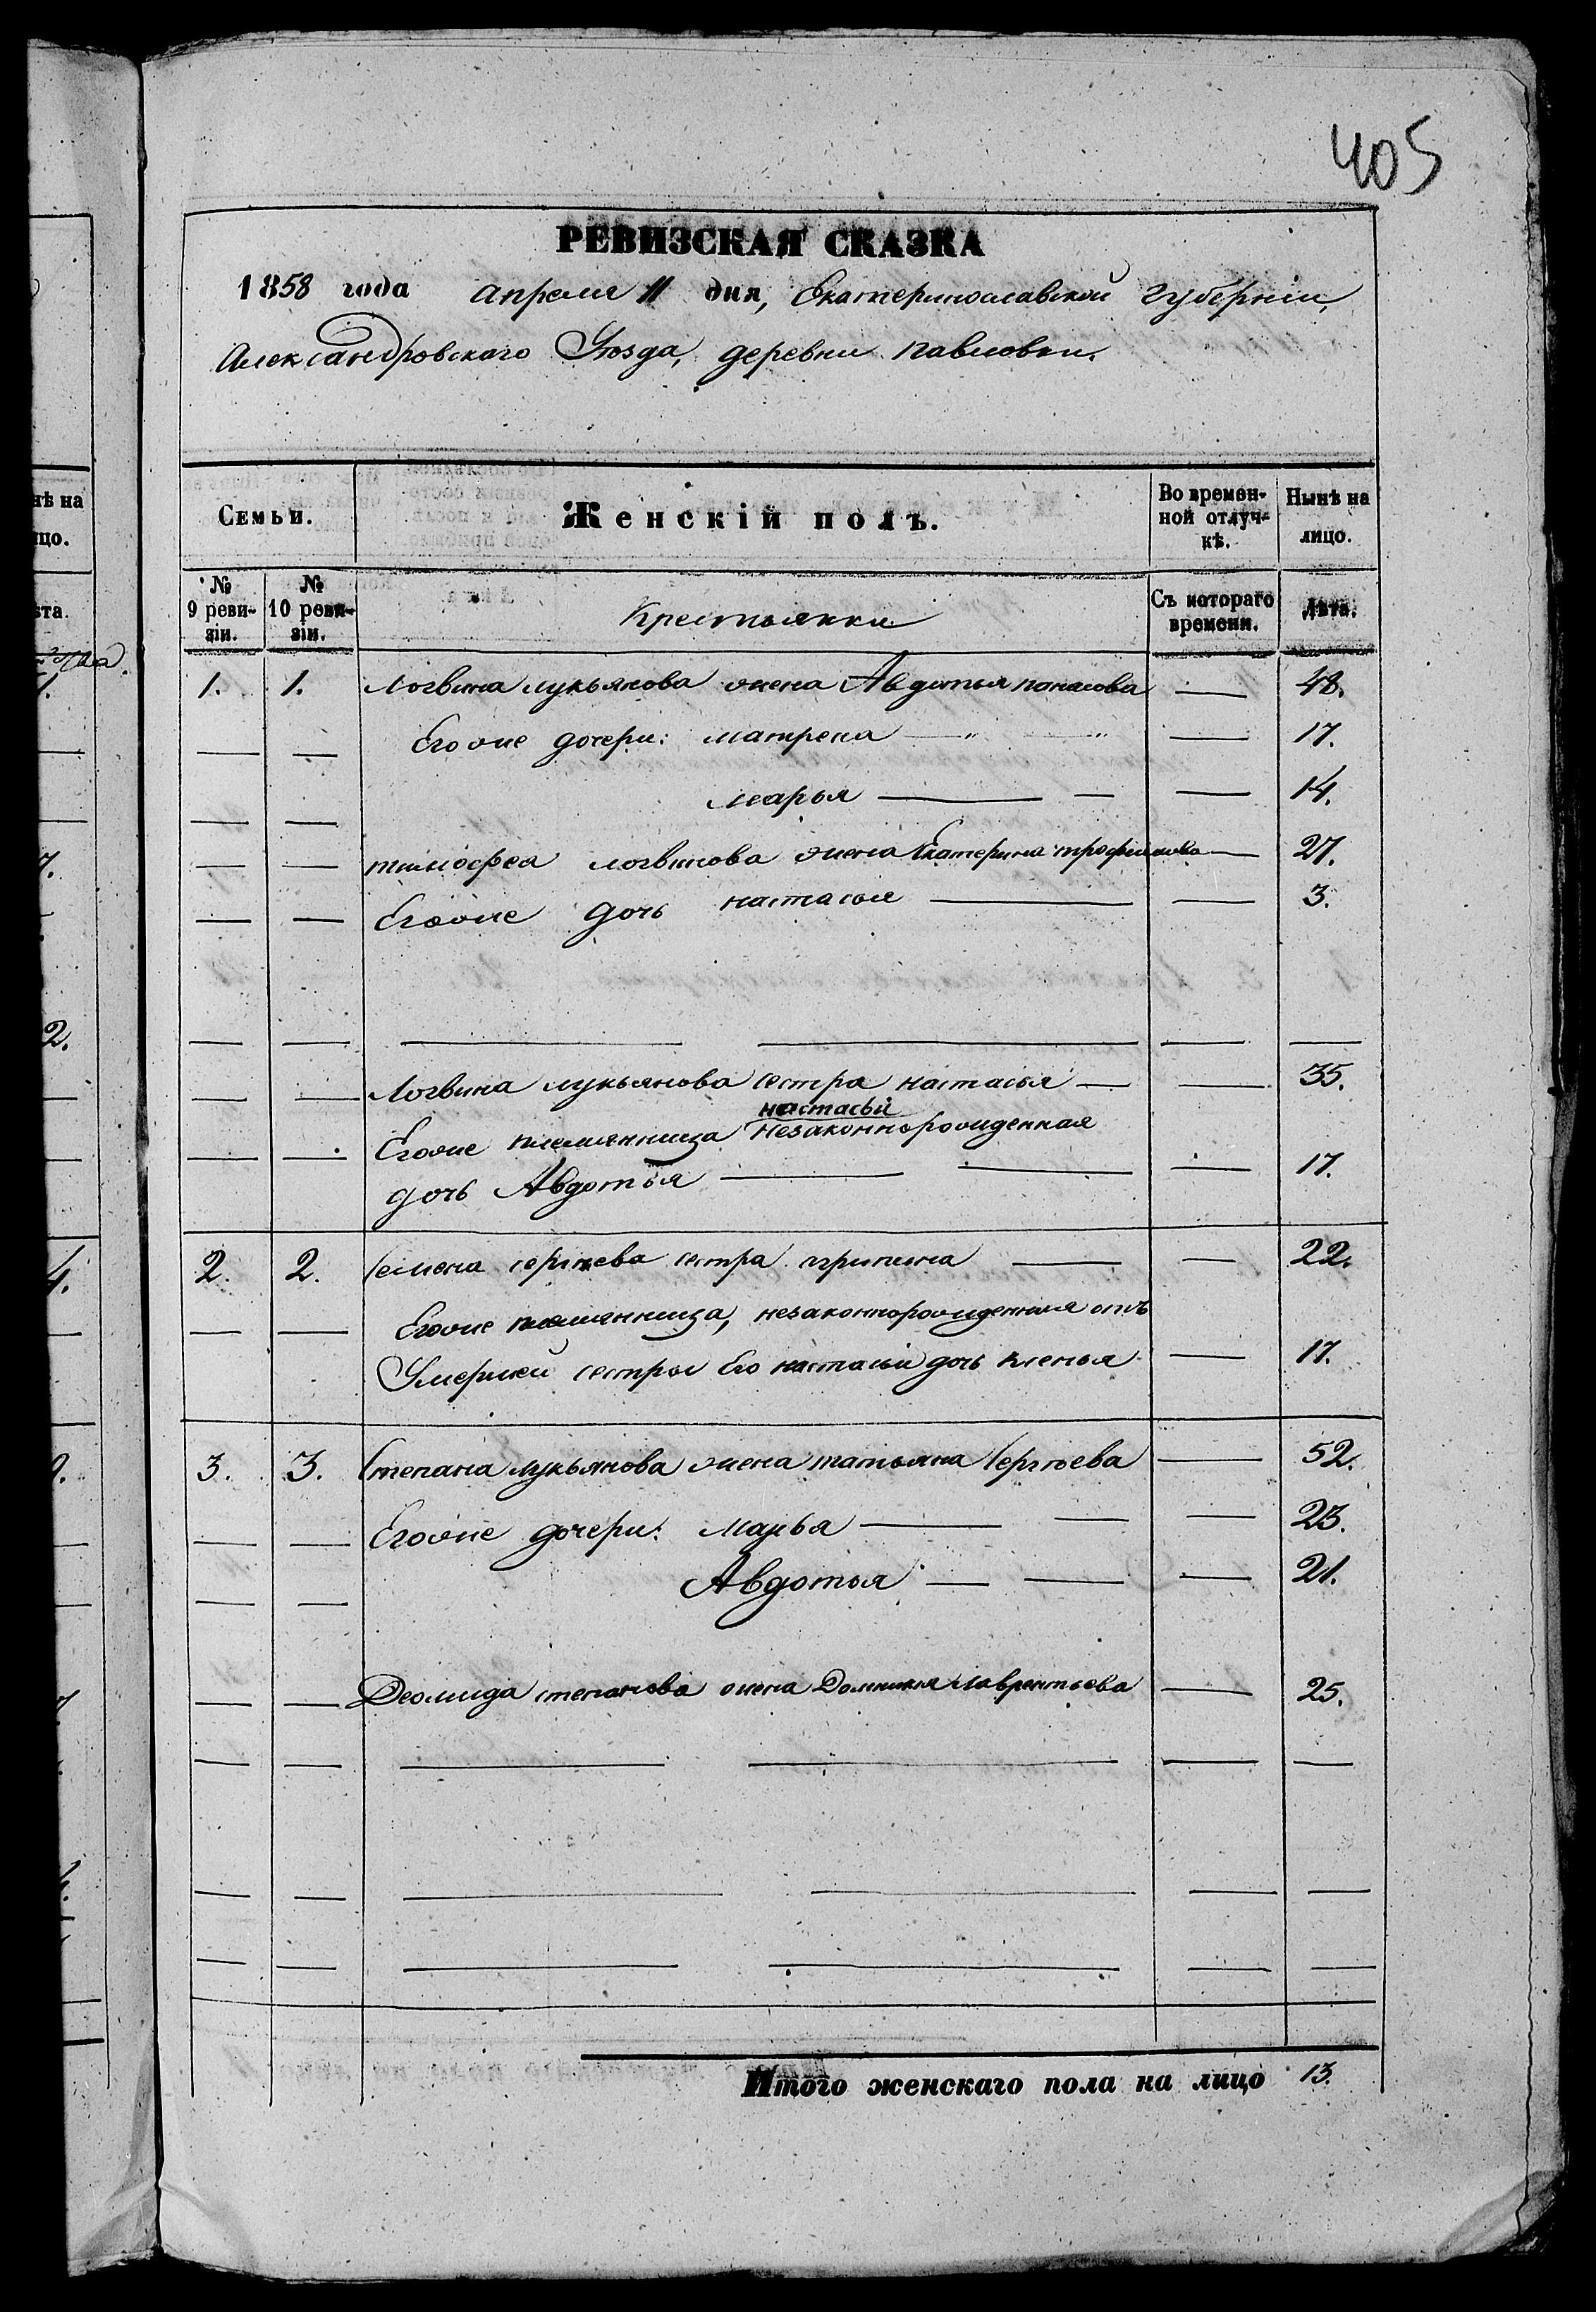 405
РЕВИЗСКАЯ СКАЗКА
1858 года апреля 11 дня, Екатеринославской губерніи,
Александровскаго Уѣзда, деревни Павловки.
Семьи. Женскій полъ. Во времен-ной отлуч-кѣ. Нынѣ на лицо.
№ 9 реви-зіи. № 10 реви-зіи. Крестьянки Съ котораго времени. Лѣта.
1. 1. Логвина лукьянова жена Авдотья панасова — 48.
— — Егоже дочери: матрена — " — " — 17.
— — марья — — — 14.
— — тимофея логвинова жена Екатерина трофимова — 27.
— — Егоже дочь настасья — — 3.
— — — — — —
— — Логвина лукьянова сестра настасья — — 35.
настасьи
— — Егоже племянница незаконнорожденная
дочь Авдотья — — — 17.
2. 2. Семена сергѣева сестра агрипина — — 22.
— — Егоже племянница, незаконнорожденная отъ
Умершей сестры Его настасьи дочь ксенья — 17.
3. 3. Степана лукьянова жена татьяна Сергѣева — 52.
— — Егоже дочери: марья — — — 23.
— — Авдотья — — — 21.
— — Деомида степанова жена Домникия лаврентьева — 25.
— — — — — —
— — — — — —
— — — — — —
Итого женскаго пола на лицо 13.
нѣ на
цо.
ѣта.
1.
7.
2.
4.